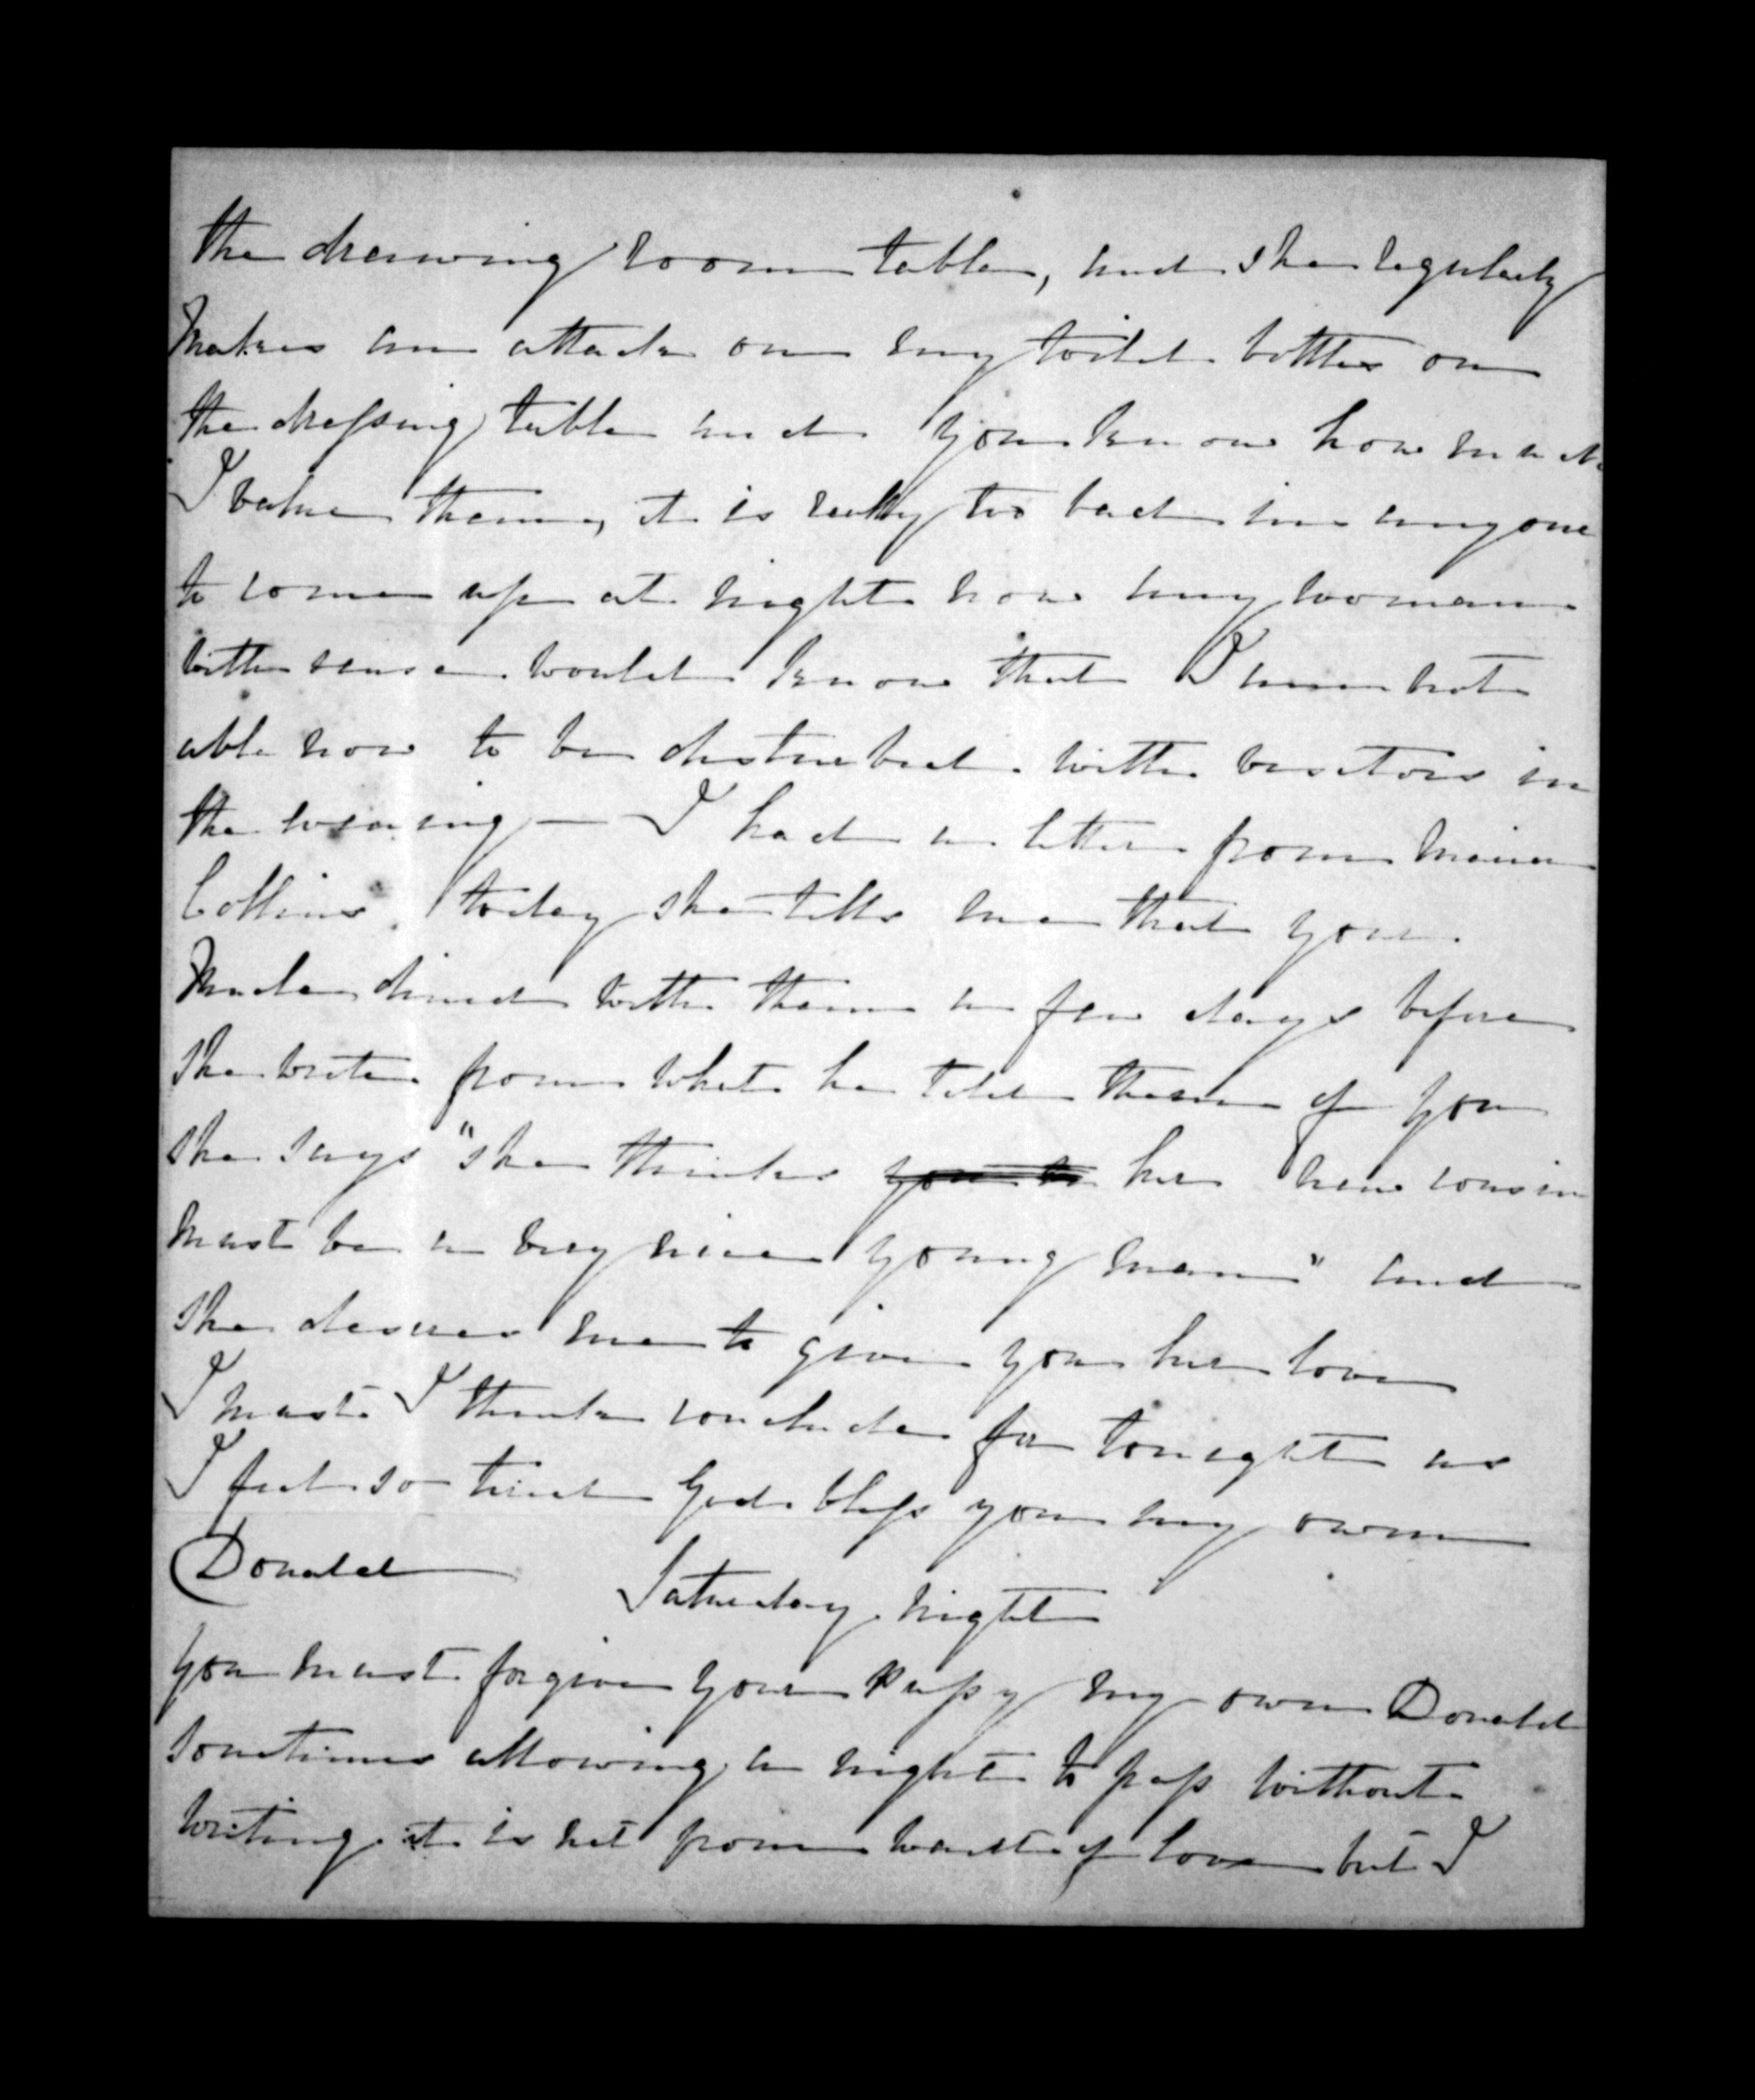 the drawing room table, and she regularly
makes an attack on my toilet bottles on
the dressing table and you know how much
I value them, it is really too bad in anyone
to come up at night now any woman
with sense would know that I am not
able now to be disturbed with visitors in
the evening — I had a letter from Maria
Collins today she tells me that your
Uncle dined with them a few days before
she wrote from what he told them of you
she says "she thinks her new cousin
must be a very nice young man" and
she desires me to give you her love
I must I think conclude for tonight as
I feel so tired God bless you my own
Donald
Saturday night
You must forgive your Pussy my own Donald
sometimes allowing a night to pass without
writing it is not from want of love but I